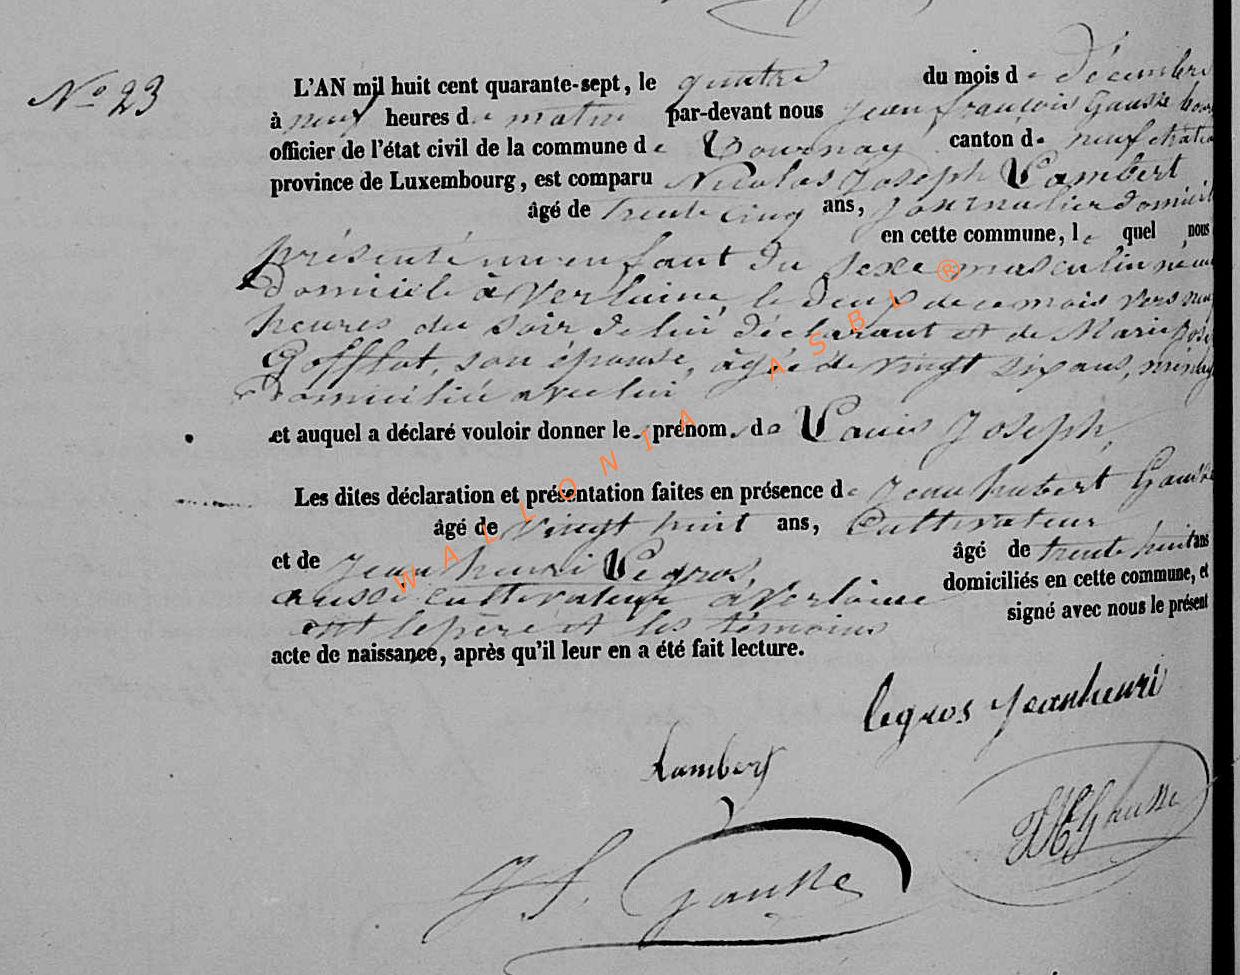 N° 23
L'AN mil huit cent quarante-sept, le quatre du mois de décembre
à neuf heures de matin par-devant nous jean françois Gausse
officier de l'état civil de la commune de Tournay canton de neufchatea
province de Luxembourg, est comparu Nicolas Joseph Lambert
âgé de trente cinq ans, journalier domicil
en cette commune, le quel nous
présenté un enfant du sexe masculin né
domicile à Verlaine le deux de ce mois vers neuf
heures du soir de lui déclarant et de Marie Jose
Gofflot, son épouse, âgée de vingt six ans, ménag
domiciliée avec lui
et auquel a déclaré vouloir donner les prénoms de Louis Joseph,
Les dites déclaration et présentation faites en présence de Jean hubert Gausse
âgé de vingt huit ans, Cultivateur
et de Jean henri Legros, âgé de trente huit ans
aussi cultivateur à Verlaine domiciliés en cette commune, et
ont le père et les témoins signé avec nous le présent
acte de naissance, après qu'il leur en a été fait lecture.
legros jeanhenri
Lambert
JH Gausse
J. f. Gausse
WALLONIA ASBL ®